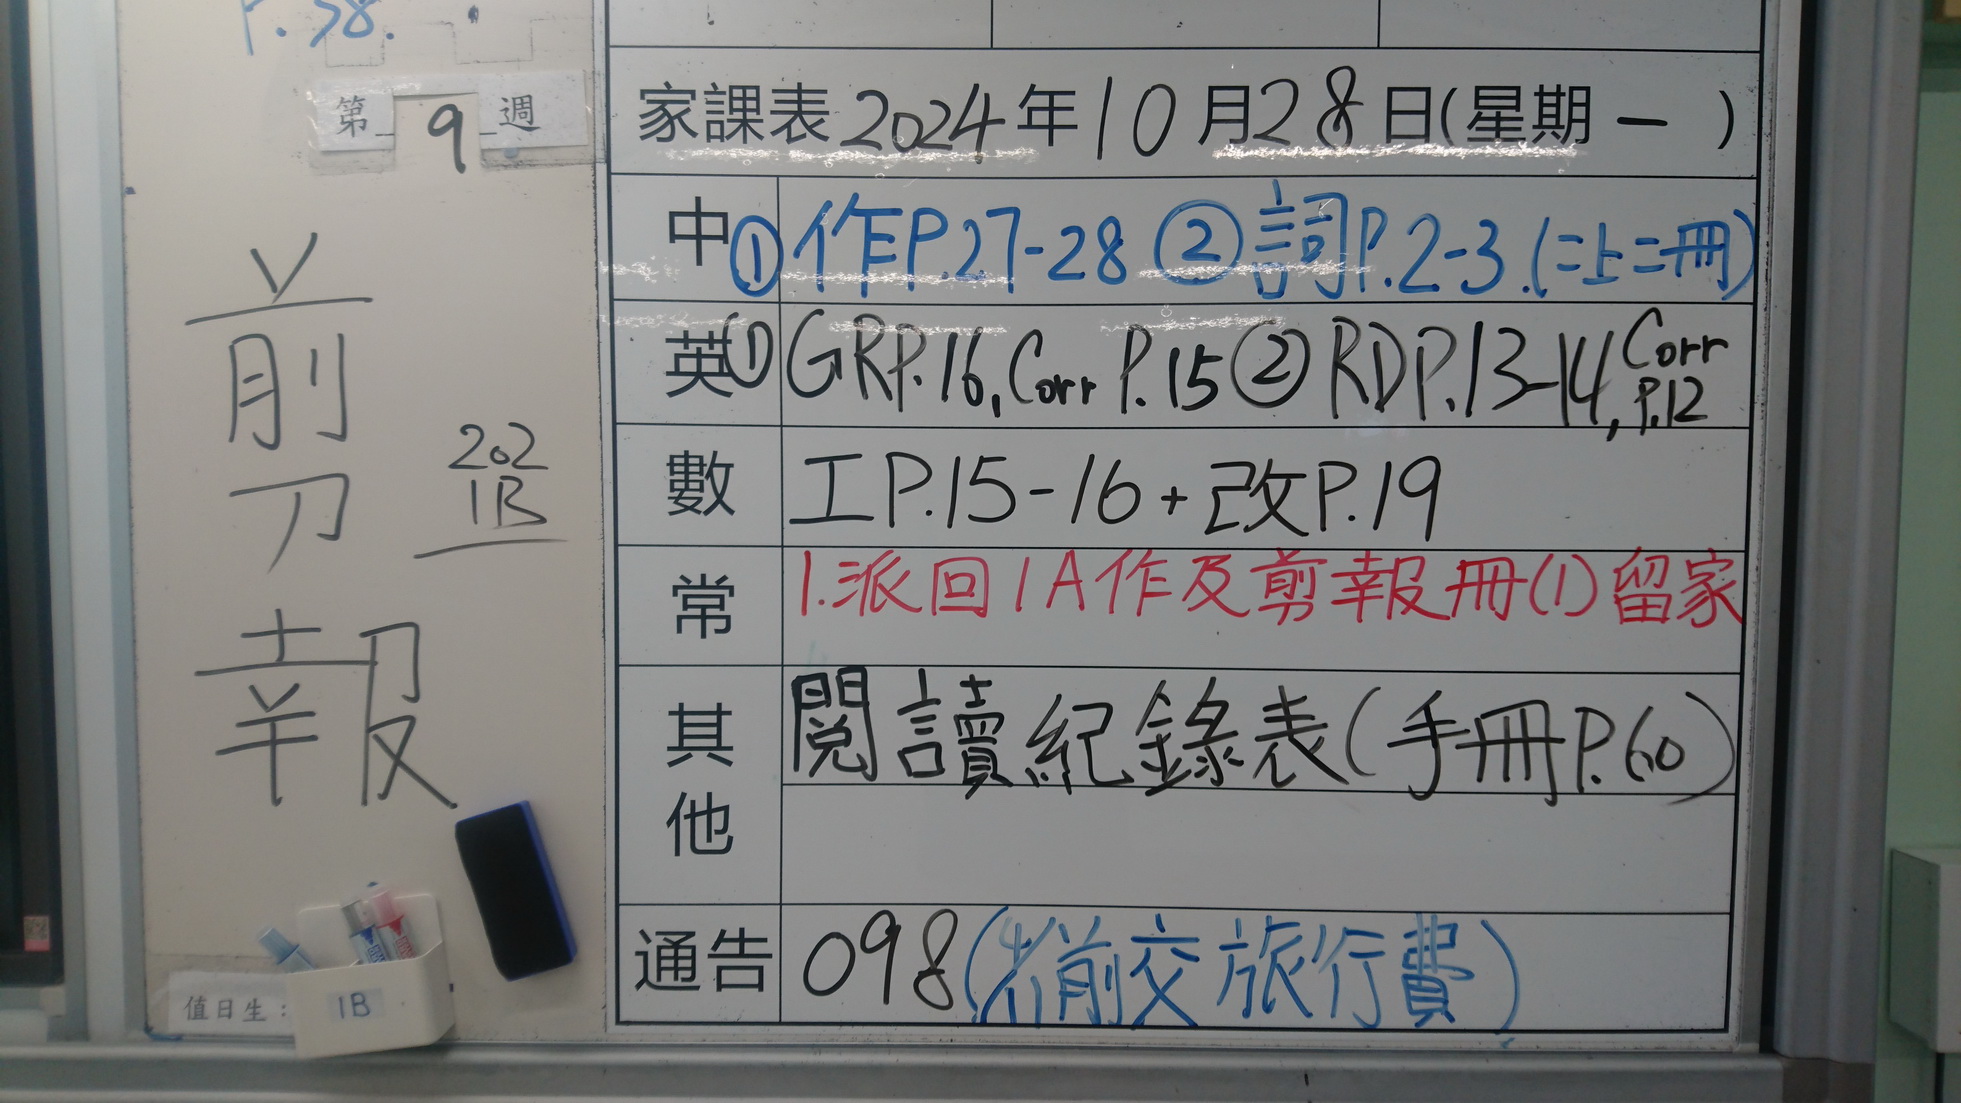 P.38.
第 9 週
剪報
202
1B
值日生：
1B
家課表 2024 年 10 月 28 日(星期 一 )
中 ① 作P.27-28 ② 詞P.2-3.(二上二冊)
英 ① GRP.16, Corr P.15 ② RDP.13-14, Corr P.12
數 工P.15-16 + 改P.19
常 1.派回1A作及剪報冊(1)留家
其他 閱讀紀錄表(手冊P.60)
通告 098 (前交旅行費)